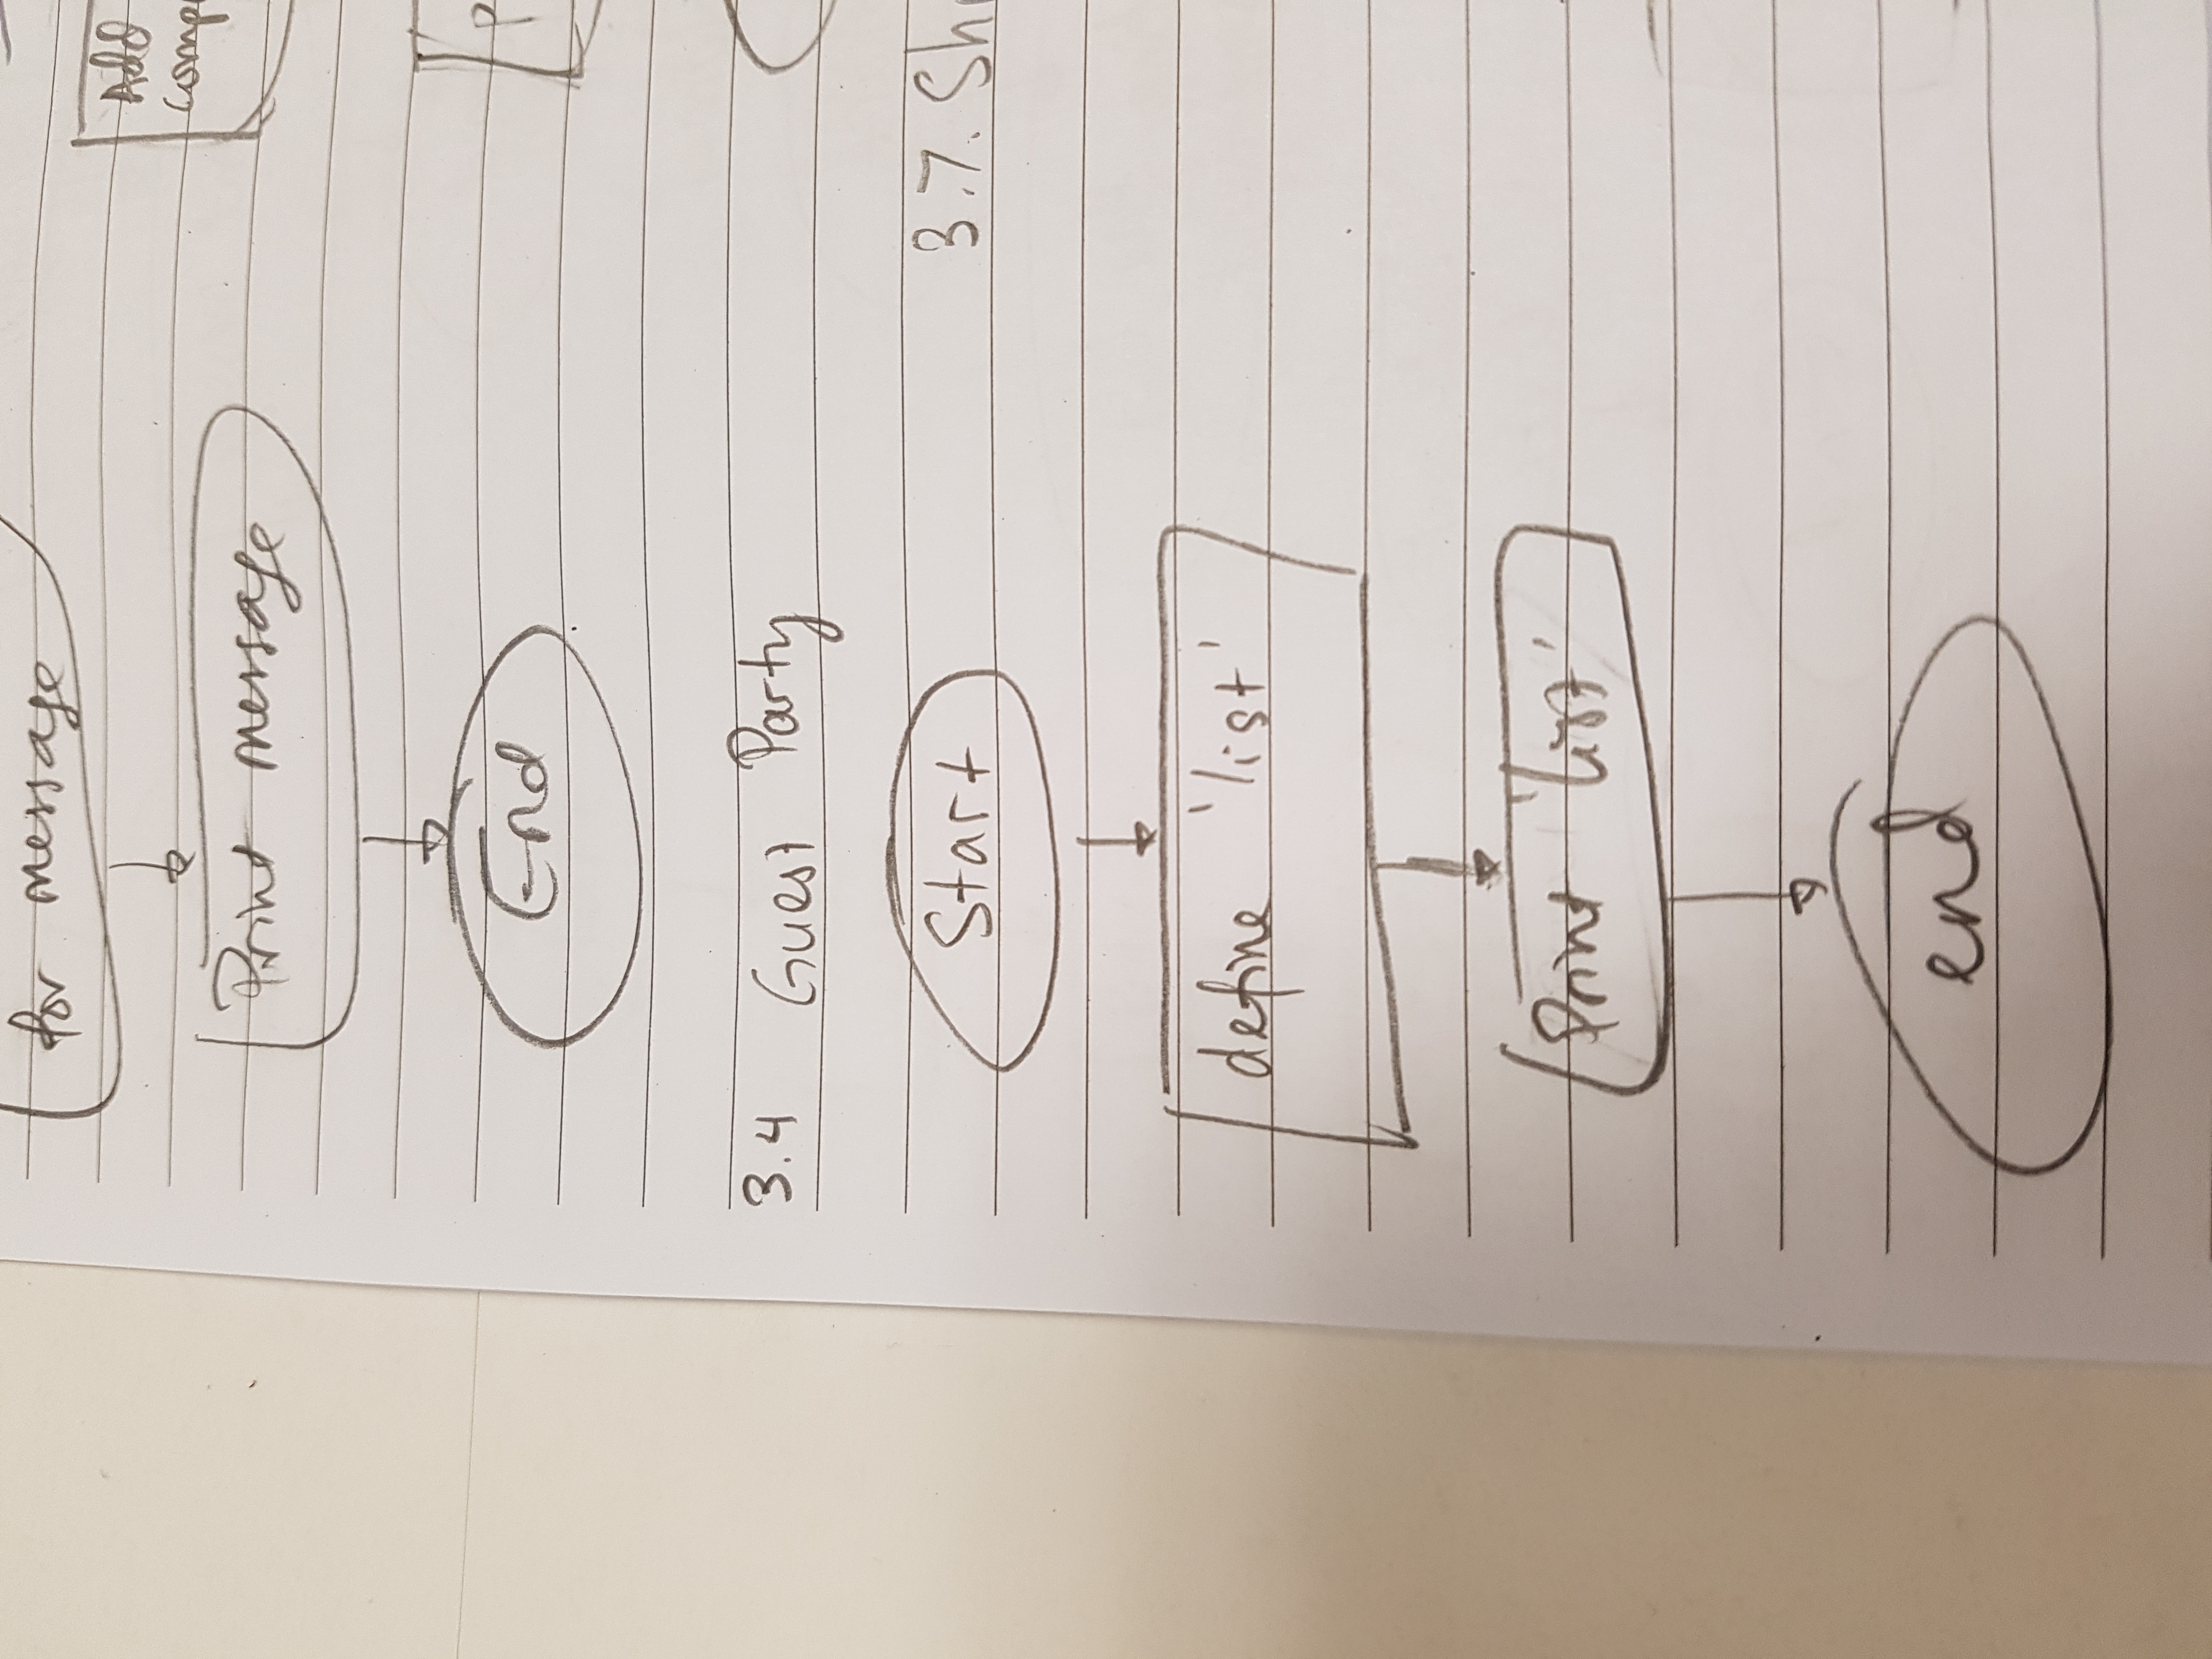 for message
Print message
End
3.4 Guest Party
Start
define 'list'
Print 'list'
end
Add
comp
P
3.7. Sh